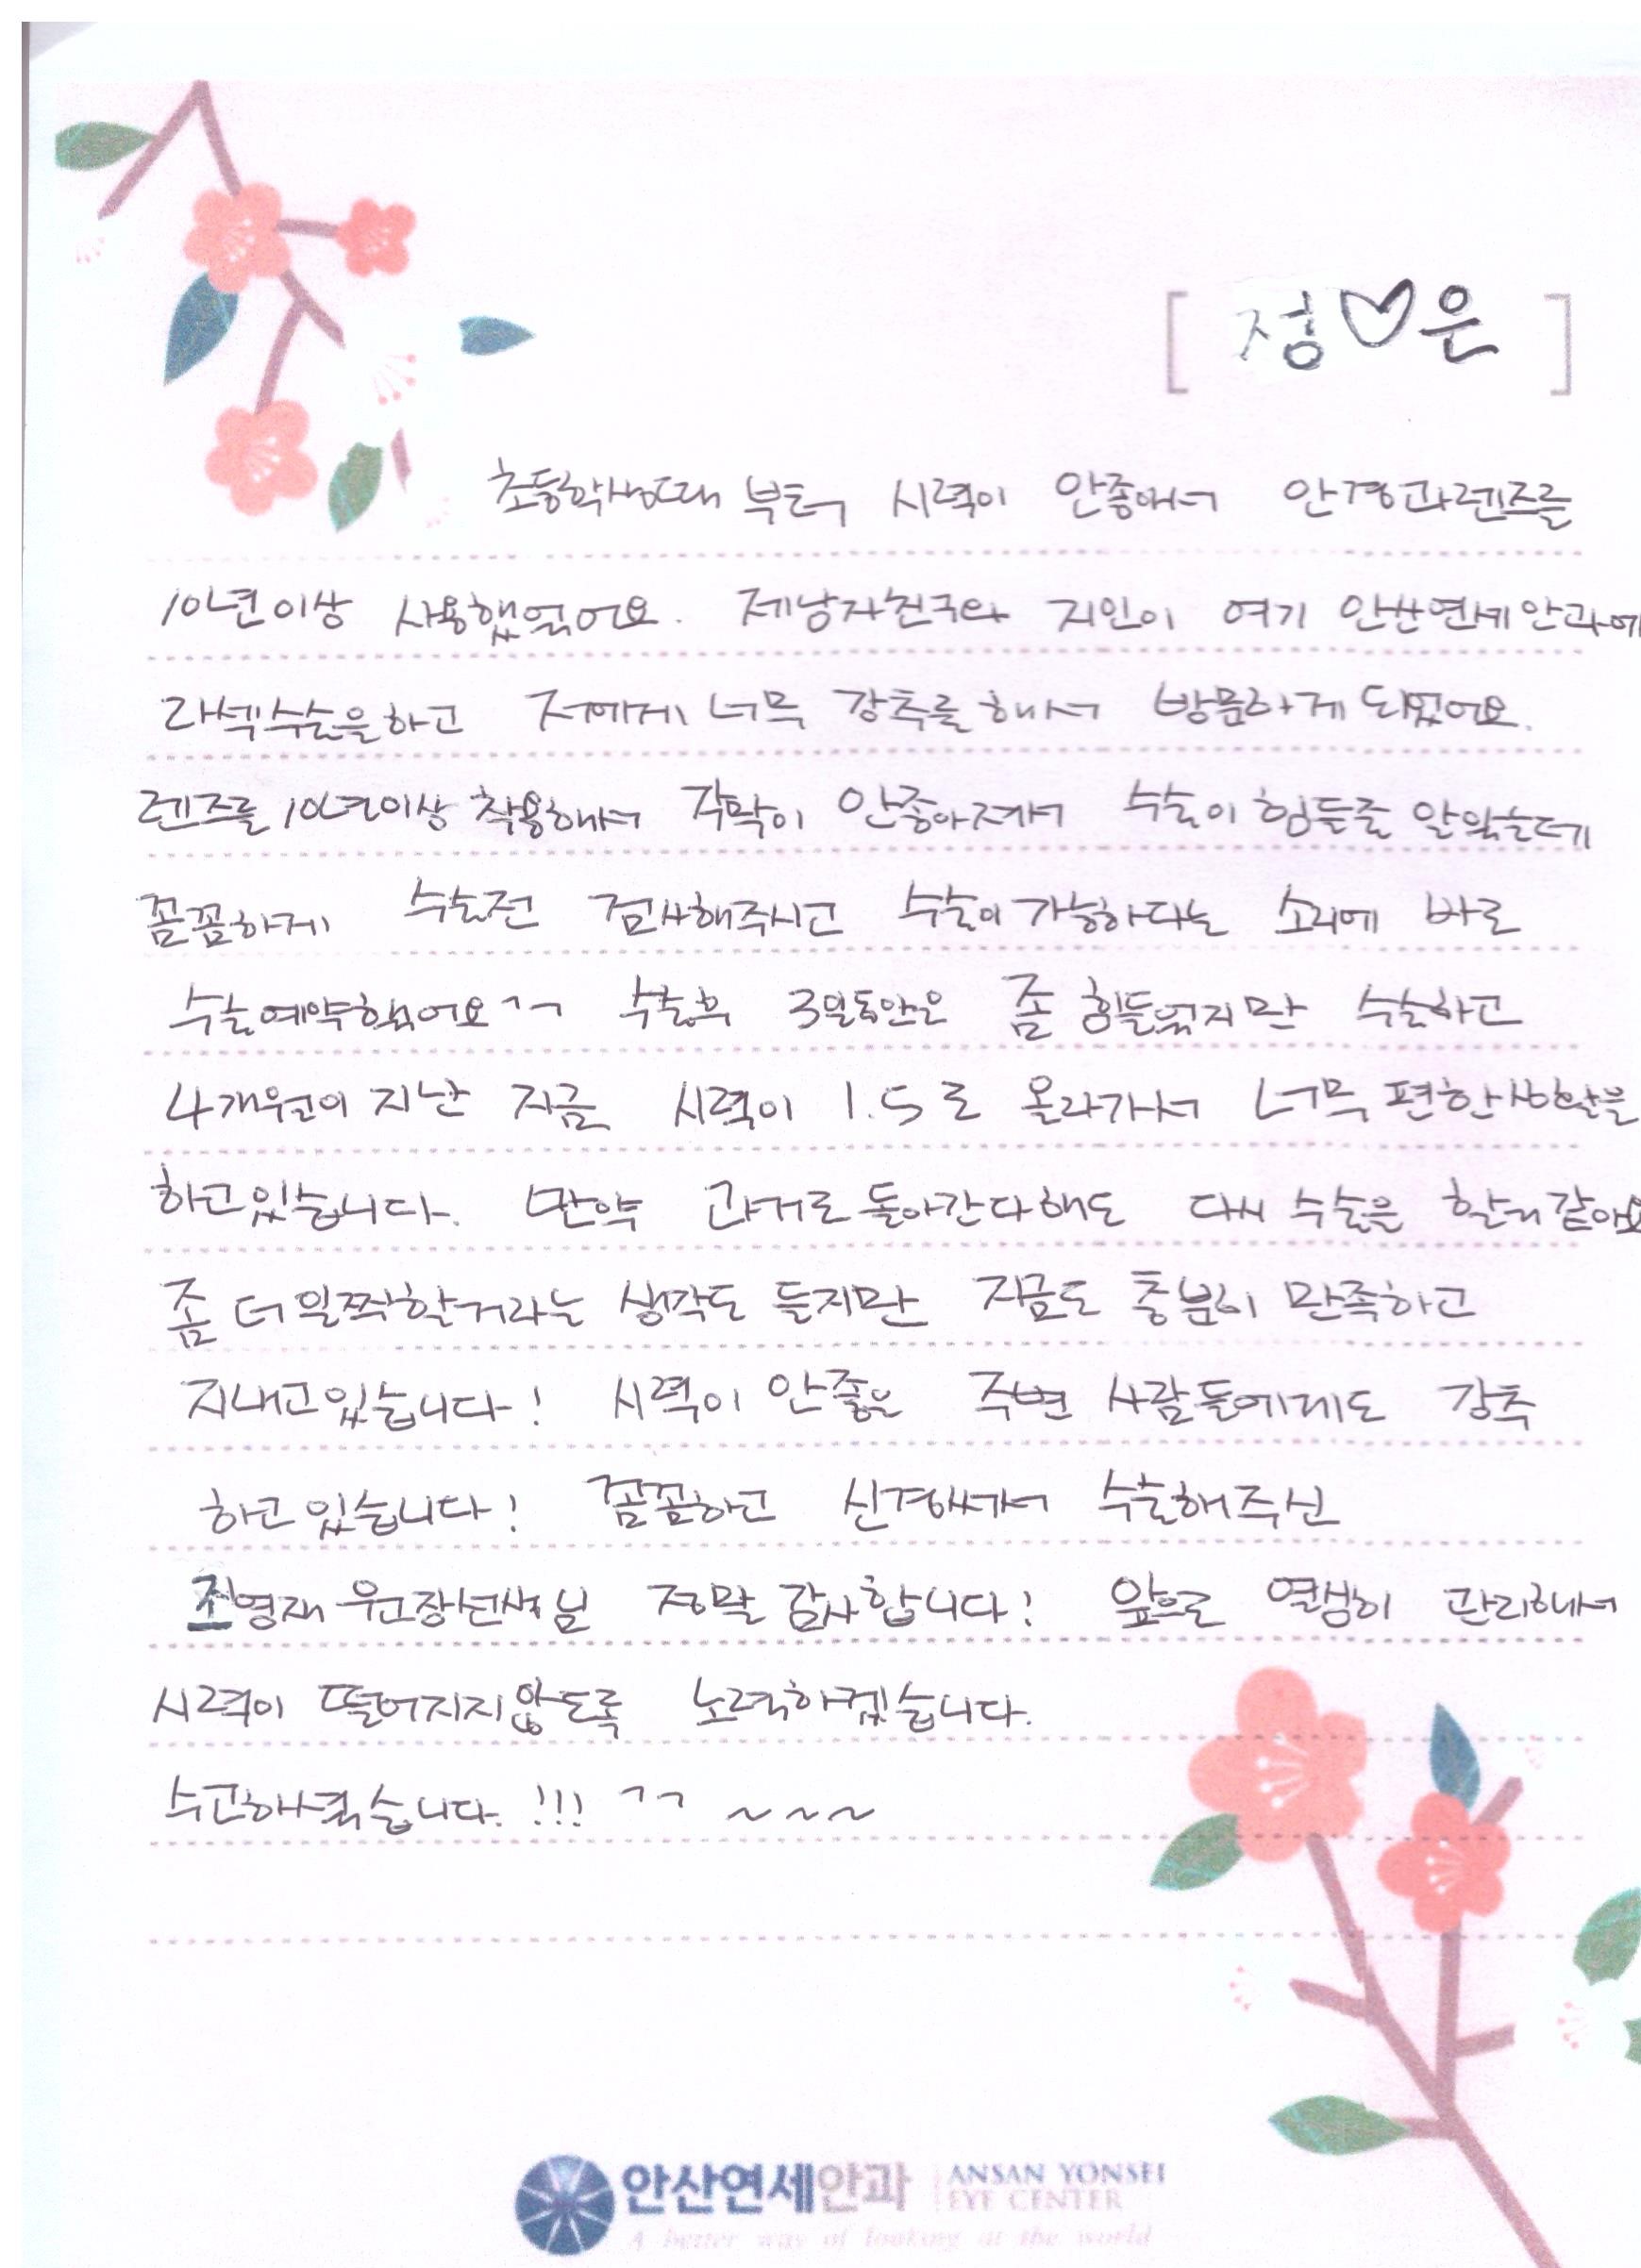 [ 정♡은 ]
초등학생때 부터 시력이 안좋아서 안경과렌즈를
10년이상 사용했었어요. 제남자친구와 지인이 여기 안산연세안과에
라섹수술을하고 저에게 너무 강추를해서 방문하게 되었어요.
렌즈를 10년이상 착용해서 각막이 안좋아져서 수술이 힘들줄 알았는데
꼼꼼하게 수술전 검사해주시고 수술이가능하다는 소리에 바로
수술예약했어요ㄱㄱ 수술후 3일동안은 좀 힘들었지만 수술하고
4개월이 지난 지금 시력이 1.5로 올라가서 너무 편한생활을
하고있습니다. 만약 과거로 돌아간다해도 다시 수술을 할거같아요
좀 더일찍할거라는 생각도 들지만 지금도 충분히 만족하고
지내고있습니다! 시력이 안좋은 주변 사람들에게도 강추
하고있습니다! 꼼꼼하고 신경써서 수술해주신
조영재원장선생님 정말 감사합니다! 앞으로 열심히 관리해서
시력이 떨어지지않도록 노력하겠습니다.
수고하셨습니다.!!! ㄱㄱ ~~~
안산연세안과 ANSAN YONSEI
EYE CENTER
A better way of looking at the world